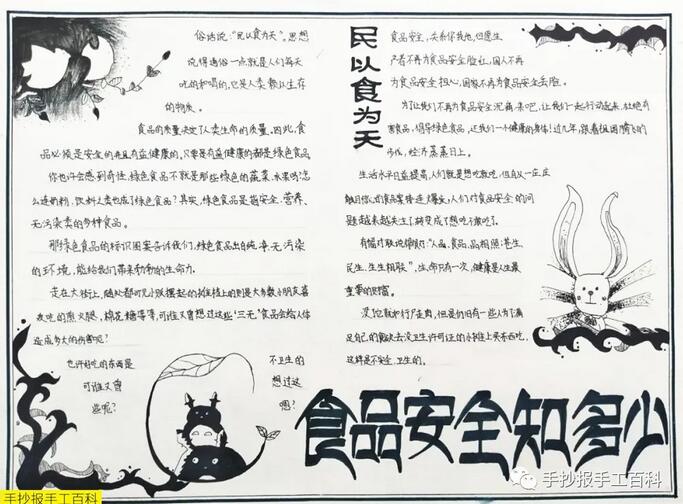 俗话说:"民以食为天"。思想
说得通俗一点就是人们每天
吃的和喝的,它是人类赖以生存
的物质。
食品的质量决定了人类生命的质量。因此,食
品必须是安全的并且有益健康的。只要是有益健康的都是绿色食品。
你也许会感到奇怪,绿色食品不就是那些绿色的蔬菜、水果吗?怎
么连奶粉、饮料人类也成了绿色食品?其实,绿色食品是指安全、营养、
无污染类的多种食品。
那绿色食品的标识图案告诉我们,绿色食品出自纯净、无污染
的环境,能给我们带来勃勃的生命力。
走在大街上,随处都可见小贩摆起的
吃的熏火腿、棉花糖等等,可谁又曾想过这些"三无"食品会给人体
造成多大的伤害呢?
也许好吃的东西是
可谁又曾
些呢?
不卫生的
想过这
嗯?
民以食为天
食品安全,关系你我他,但愿生
产者不再为食品安全脸红,国人不再
为食品安全担心,国家不再为食品安全丢脸。
为了让我们不再为食品安全沉痛,来吧,让我们一起行动起来,杜绝有
害食品,倡导绿色食品,还我们一个健康的身体!过几年,跟着祖国腾飞的
步伐,经济蒸蒸日上。
生活水平日益提高,人们就是想吃就吃,但自从一庄庄
触目惊心的食品案接连爆发,人们对食品安全的问
题越来越关注了,转变成了想吃不敢吃了。
有幅对联说得好:"人品,食品,品相照;苍生,
民生,生生相联",生命只有一次,健康是人生最
重要的财富。
没它就如行尸走肉,但是仍旧有一些人为了满
足自己的食欲去没卫生许可证的小摊上买东西吃,
这样是不安全、卫生的。
食品安全知多少
手抄报手工百科
手抄报手工百科